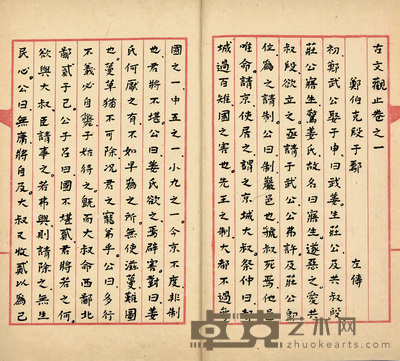 古文觀止卷之一
鄭伯克段于鄢 左傳
初鄭武公娶于申曰武姜生莊公及共叔段
莊公寤生驚姜氏故名曰寤生遂惡之愛共
叔段欲立之亟請于武公公弗許及莊公即
位為之請制公曰制巖邑也虢叔死焉他邑
唯命請京使居之謂之京城大叔祭仲曰都
城過百雉國之害也先王之制大都不過參
國之一中五之一小九之一今京不度非制
也君將不堪公曰姜氏欲之焉辟害對曰姜
氏何厭之有不如早為之所無使滋蔓難圖
也蔓草猶不可除况君之寵弟乎公曰多行
不義必自斃子姑待之既而大叔命西鄙北
鄙貳于己公子呂曰國不堪貳君將若之何
欲與大叔臣請事之若弗與則請除之無生
民心公曰無庸將自及大叔又收貳以為己
卓克艺术网